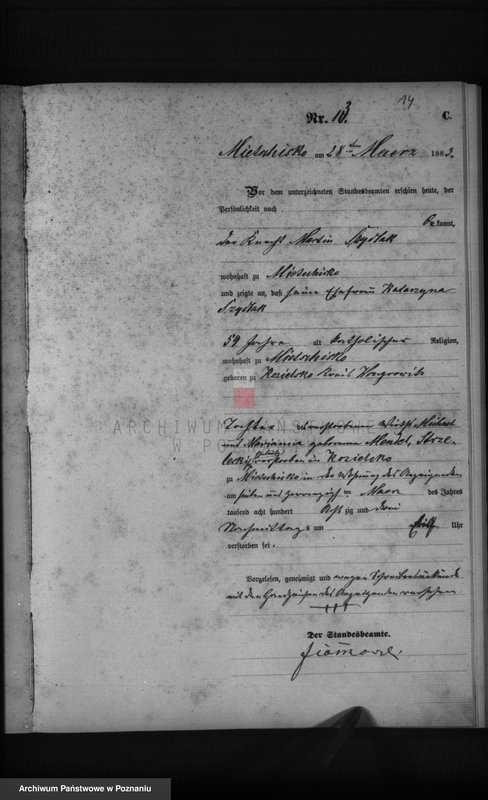 14
Nr. 13. C.
Mietschisko am 28ten Maerz 1883.
Vor dem unterzeichneten Standesbeamten erschien heute, der
Persönlichkeit nach
be kannt,
der Knecht Martin Szydlak
wohnhaft zu Mietschisko
und zeigte an, daß seine Ehefrau Katarzyna
Szydlak
59 Jahre alt katholischer Religion,
wohnhaft zu Mietschisko
geboren zu Kozielsko Kreis Wongrowitz
Tochter des verstorbenen Michael
und Marianna geborenen
verstorben in Kozielsko
ARCHIWUM PAŃSTWOWE
W POZNANIU
zu Mietschisko in der Wohnung des Anzeigenden
am sieben und zwanzigsten Maerz des Jahres
tausend acht hundert Acht zig und drei
Nachmittags um Uhr
verstorben sei.
Vorgelesen, genehmigt und wegen Schreibensunkunde
mit den Handzeichen des Anzeigenden versehen
+++
Der Standesbeamte.
Archiwum Państwowe w Poznaniu